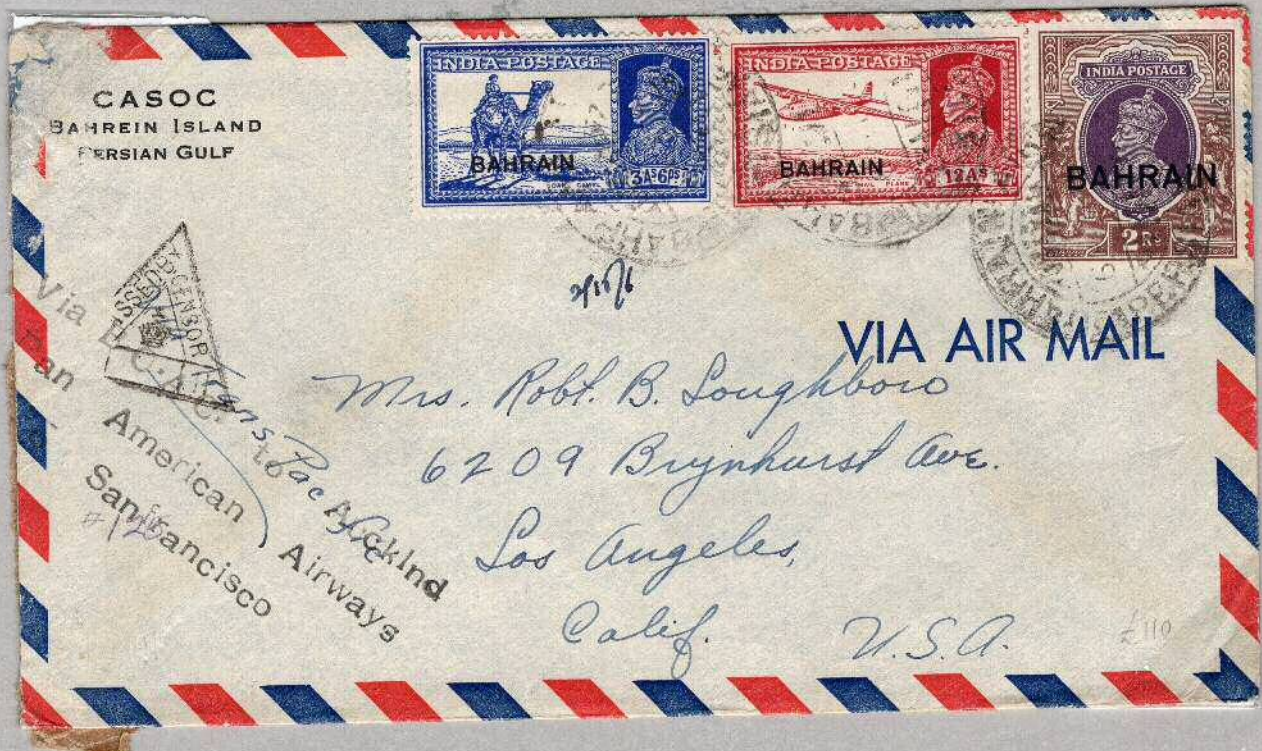 CASOC
BAHREIN ISLAND
PERSIAN GULF
INDIA POSTAGE
BAHRAIN
3AS6PS
INDIA POSTAGE
BAHRAIN
12AS
INDIA POSTAGE
BAHRAIN
2RS
PASSED BY CENSOR
2/15/6
VIA AIR MAIL
Via
Pan American Airways
to Auckland
San francisco
Trans Pacific
Mrs. Robt. B. Loughboro
6209 Brynhurst Ave.
Los Angeles,
Calif. U.S.A.
£110